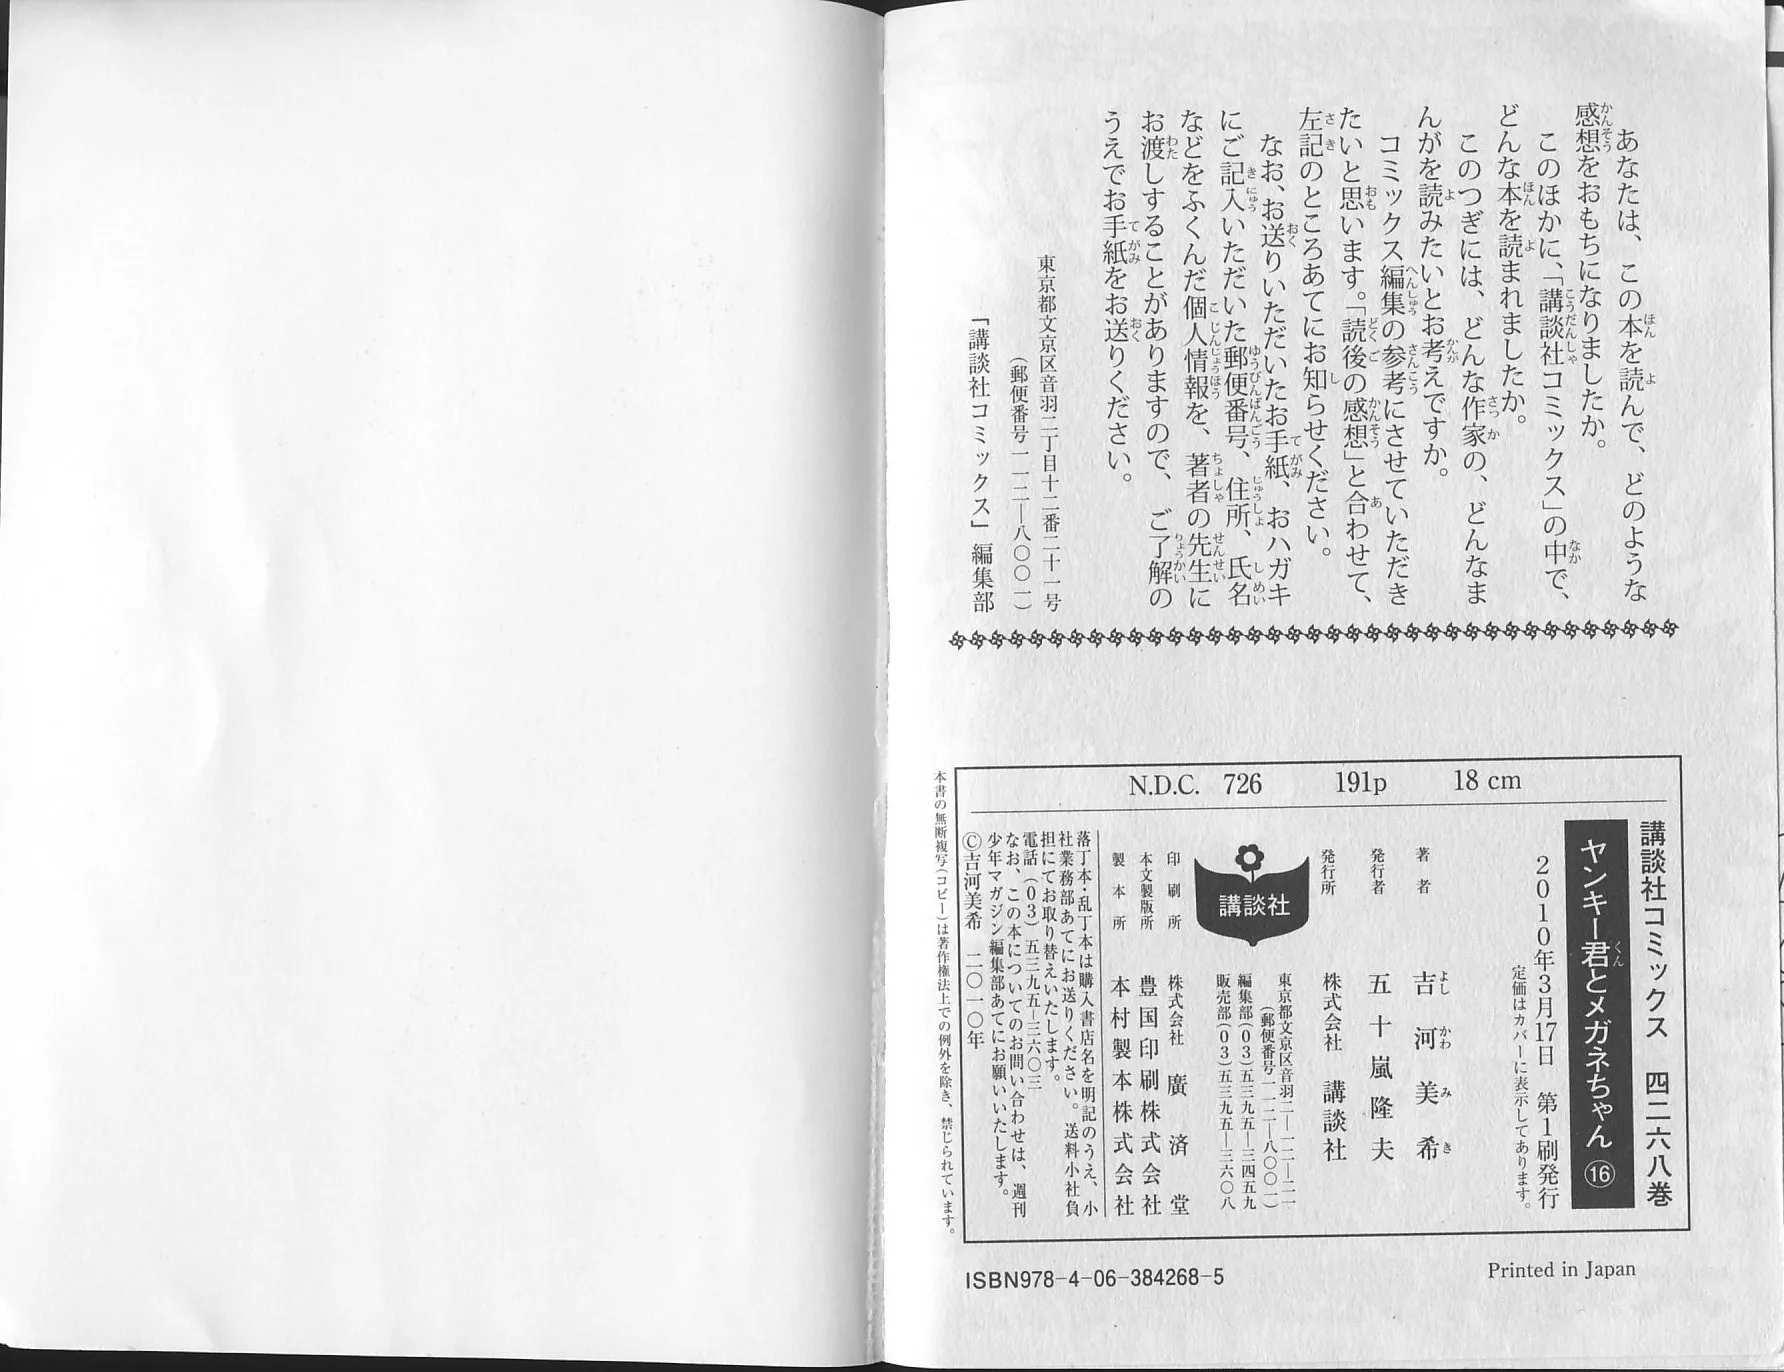 あなたは、この本を読んで、どのような
感想をおもちになりましたか。
このほかに、「講談社コミックス」の中で、
どんな本を読まれましたか。
このつぎには、どんな作家の、どんなま
んがを読みたいとお考えですか。
コミックス編集の参考にさせていただき
たいと思います。「読後の感想」と合わせて、
左記のところあてにお知らせください。
なお、お送りいただいたお手紙、おハガキ
にご記入いただいた郵便番号、住所、氏名
などをふくんだ個人情報を、著者の先生に
お渡しすることがありますので、ご了解の
うえでお手紙をお送りください。
東京都文京区音羽二丁目十二番二十一号
(郵便番号一一二―八〇〇一)
「講談社コミックス」編集部
N.D.C. 726 191p 18 cm
講談社コミックス 四二六八巻
ヤンキー君とメガネちゃん ⑯
2010年3月17日 第1刷発行
定価はカバーに表示してあります。
著者 吉河美希
発行者 五十嵐隆夫
発行所 株式会社 講談社
東京都文京区音羽二―一二―二一
(郵便番号一一二―八〇〇一)
編集部(03)五三九五―三四五九
販売部(03)五三九五―三六〇八
講談社
印刷所 株式会社 廣済堂
本文製版所 豊国印刷株式会社
製本所 本村製本株式会社
落丁本・乱丁本は購入書店名を明記のうえ、小
社業務部あてにお送りください。送料小社負
担にてお取り替えいたします。
電話(03)五三九五―三六〇三
なお、この本についてのお問い合わせは、週刊
少年マガジン編集部あてにお願いいたします。
©吉河美希 二〇一〇年
本書の無断複写(コピー)は著作権法上での例外を除き、禁じられています。
ISBN978-4-06-384268-5
Printed in Japan